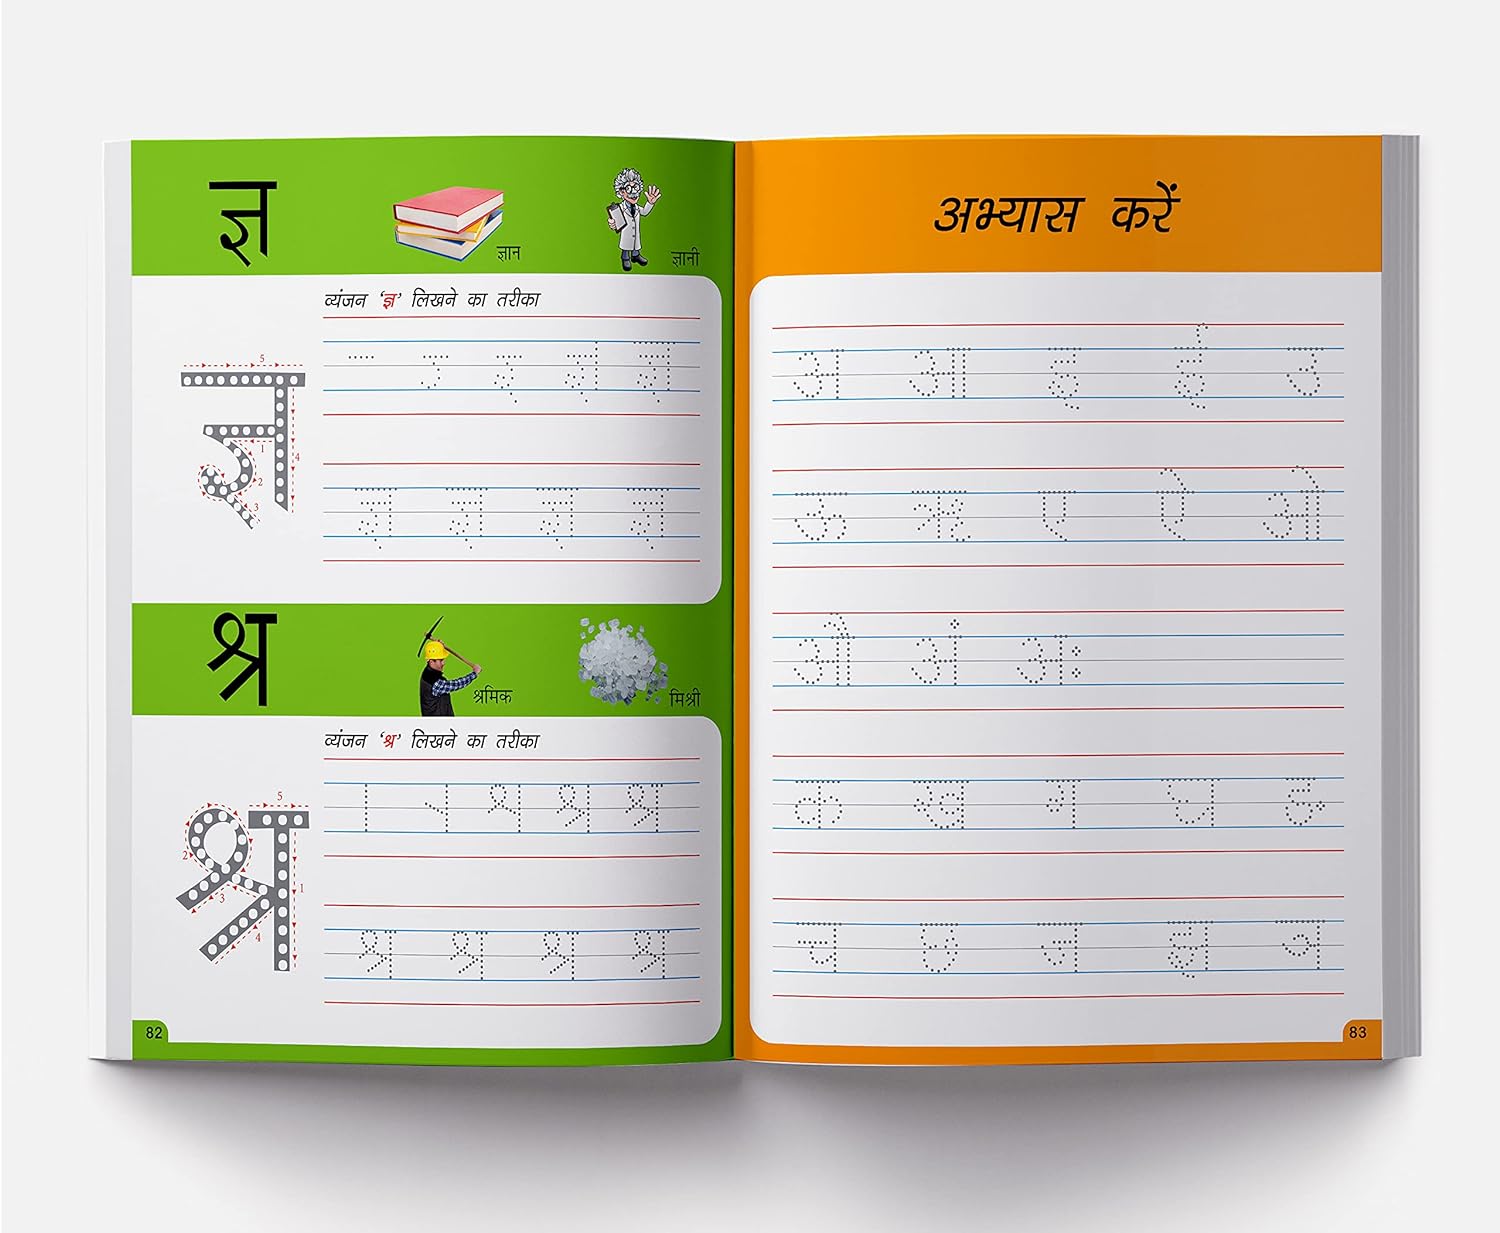 ज्ञ
ज्ञान
ज्ञानी
व्यंजन ‘ज्ञ’ लिखने का तरीका
5
1
2
3
4
ज्ञ ज्ञ ज्ञ ज्ञ
श्र
श्रमिक
मिश्री
व्यंजन ‘श्र’ लिखने का तरीका
5
2
3
1
4
श्र श्र श्र श्र
82
अभ्यास करें
अ आ इ ई उ
ऊ ऋ ए ऐ ओ
औ अं अः
क ख ग घ ङ
च छ ज झ ञ
83